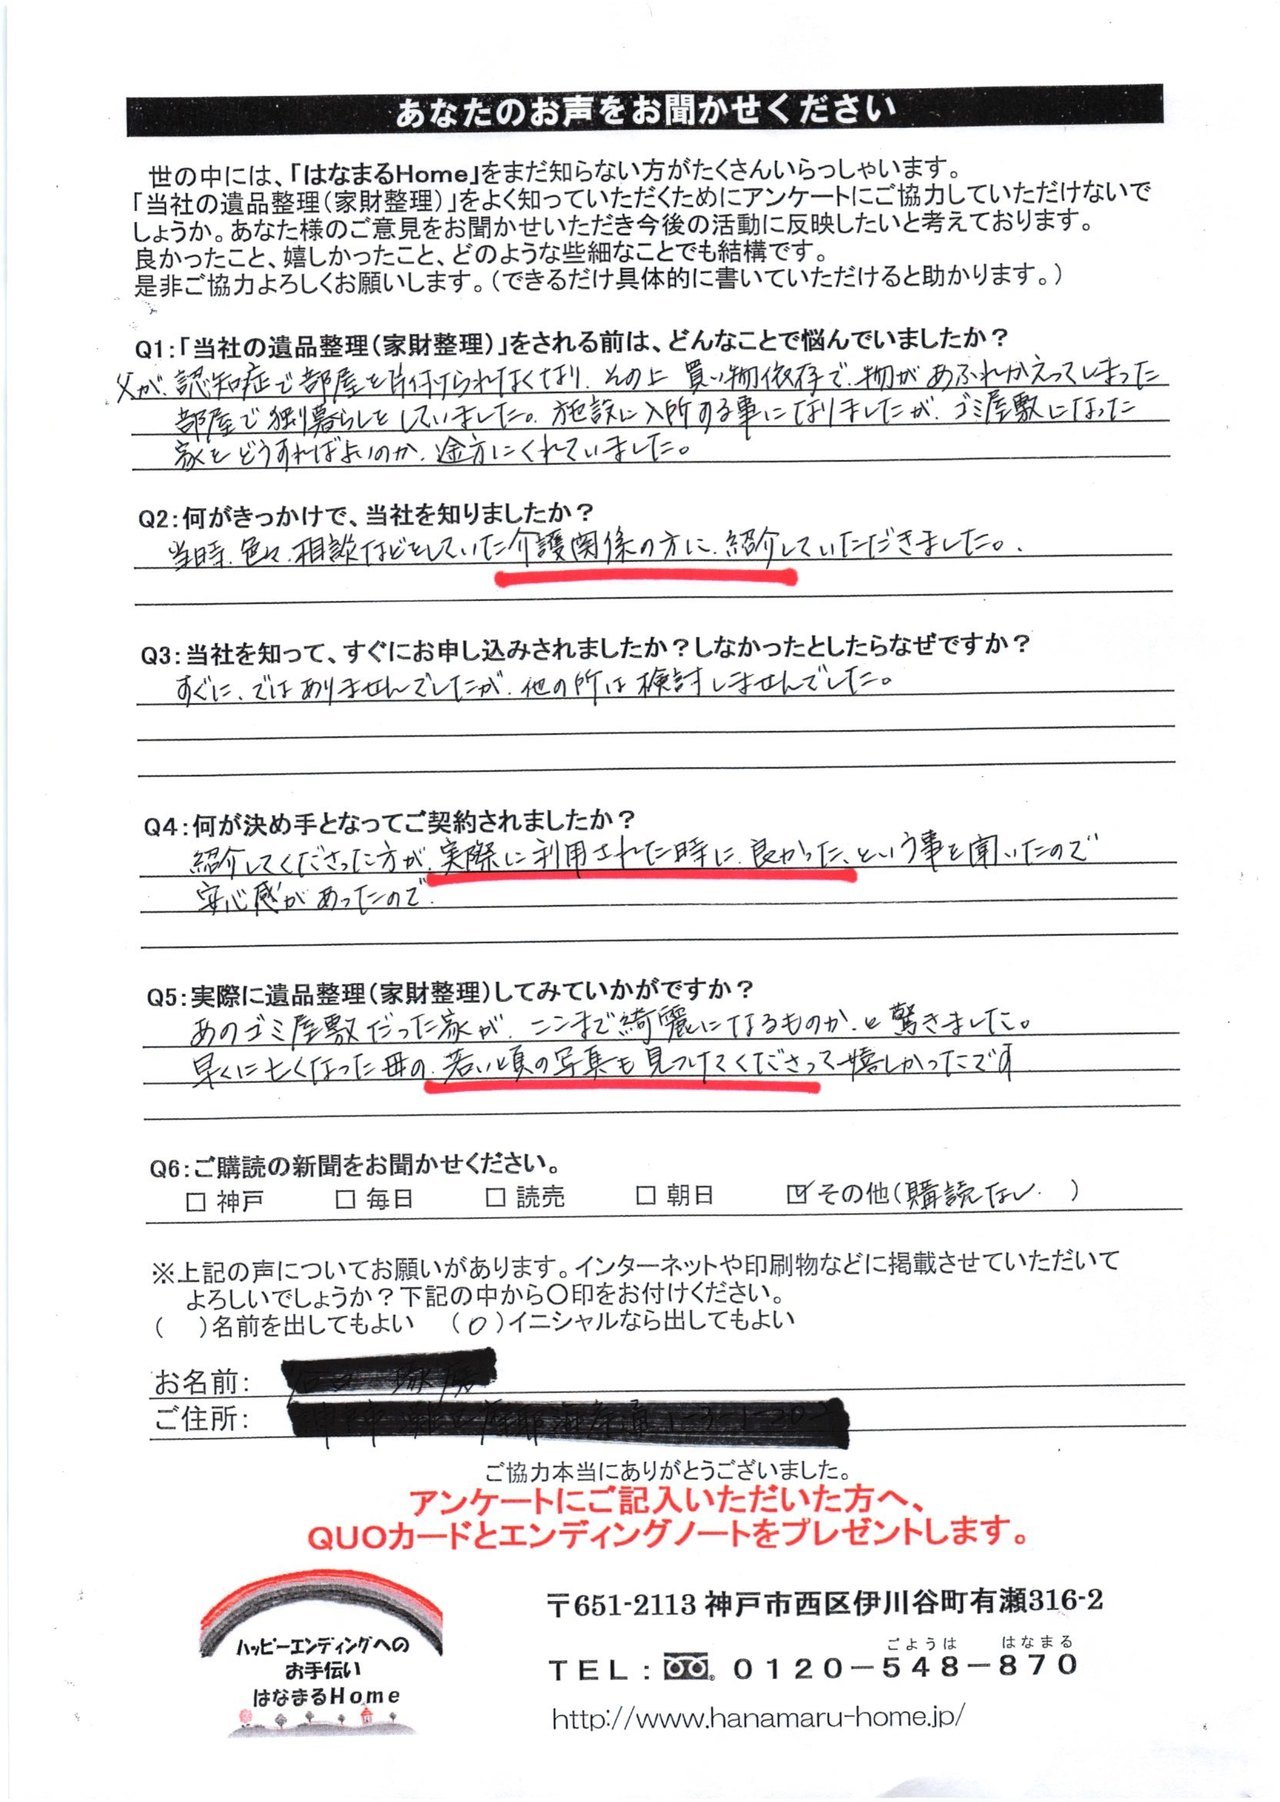 あなたのお声をお聞かせください
世の中には、「はなまるHome」をまだ知らない方がたくさんいらっしゃいます。
「当社の遺品整理(家財整理)」をよく知っていただくためにアンケートにご協力していただけないで
しょうか。あなた様のご意見をお聞かせいただき今後の活動に反映したいと考えております。
良かったこと、嬉しかったこと、どのような些細なことでも結構です。
是非ご協力よろしくお願いします。(できるだけ具体的に書いていただけると助かります。)
Q1:「当社の遺品整理(家財整理)」をされる前は、どんなことで悩んでいましたか?
父が、認知症で部屋を片付けられなくなり、その上 買い物依存で、物があふれかえってしまった
部屋で独り暮らしをしていました。施設に入所する事になりましたが、ゴミ屋敷になった
家をどうすればよいのか、途方にくれていました。
Q2:何がきっかけで、当社を知りましたか?
当時、色々、相談などをしていた介護関係の方に、紹介していただきました。
Q3:当社を知って、すぐにお申し込みされましたか?しなかったとしたらなぜですか?
すぐに、ではありませんでしたが、他の所は検討しませんでした。
Q4:何が決め手となってご契約されましたか?
紹介してくださった方が、実際に利用された時に、良かった、という事を聞いたので
安心感があったので、
Q5:実際に遺品整理(家財整理)してみていかがですか?
あのゴミ屋敷だった家が、ここまで綺麗になるものか、と驚きました。
早くに亡くなった母の、若い頃の写真も見つけてくださって嬉しかったです
Q6:ご購読の新聞をお聞かせください。
□ 神戸 □ 毎日 □ 読売 □ 朝日 ☑ その他(購読なし )
※上記の声についてお願いがあります。インターネットや印刷物などに掲載させていただいて
よろしいでしょうか?下記の中から〇印をお付けください。
( )名前を出してもよい (○)イニシャルなら出してもよい
お名前:
ご住所:
ご協力本当にありがとうございました。
アンケートにご記入いただいた方へ、
QUOカードとエンディングノートをプレゼントします。
ハッピーエンディングへの
お手伝い
はなまるHome
〒651-2113 神戸市西区伊川谷町有瀬316-2
ごようは はなまる
TEL: 0120-548-870
http://www.hanamaru-home.jp/